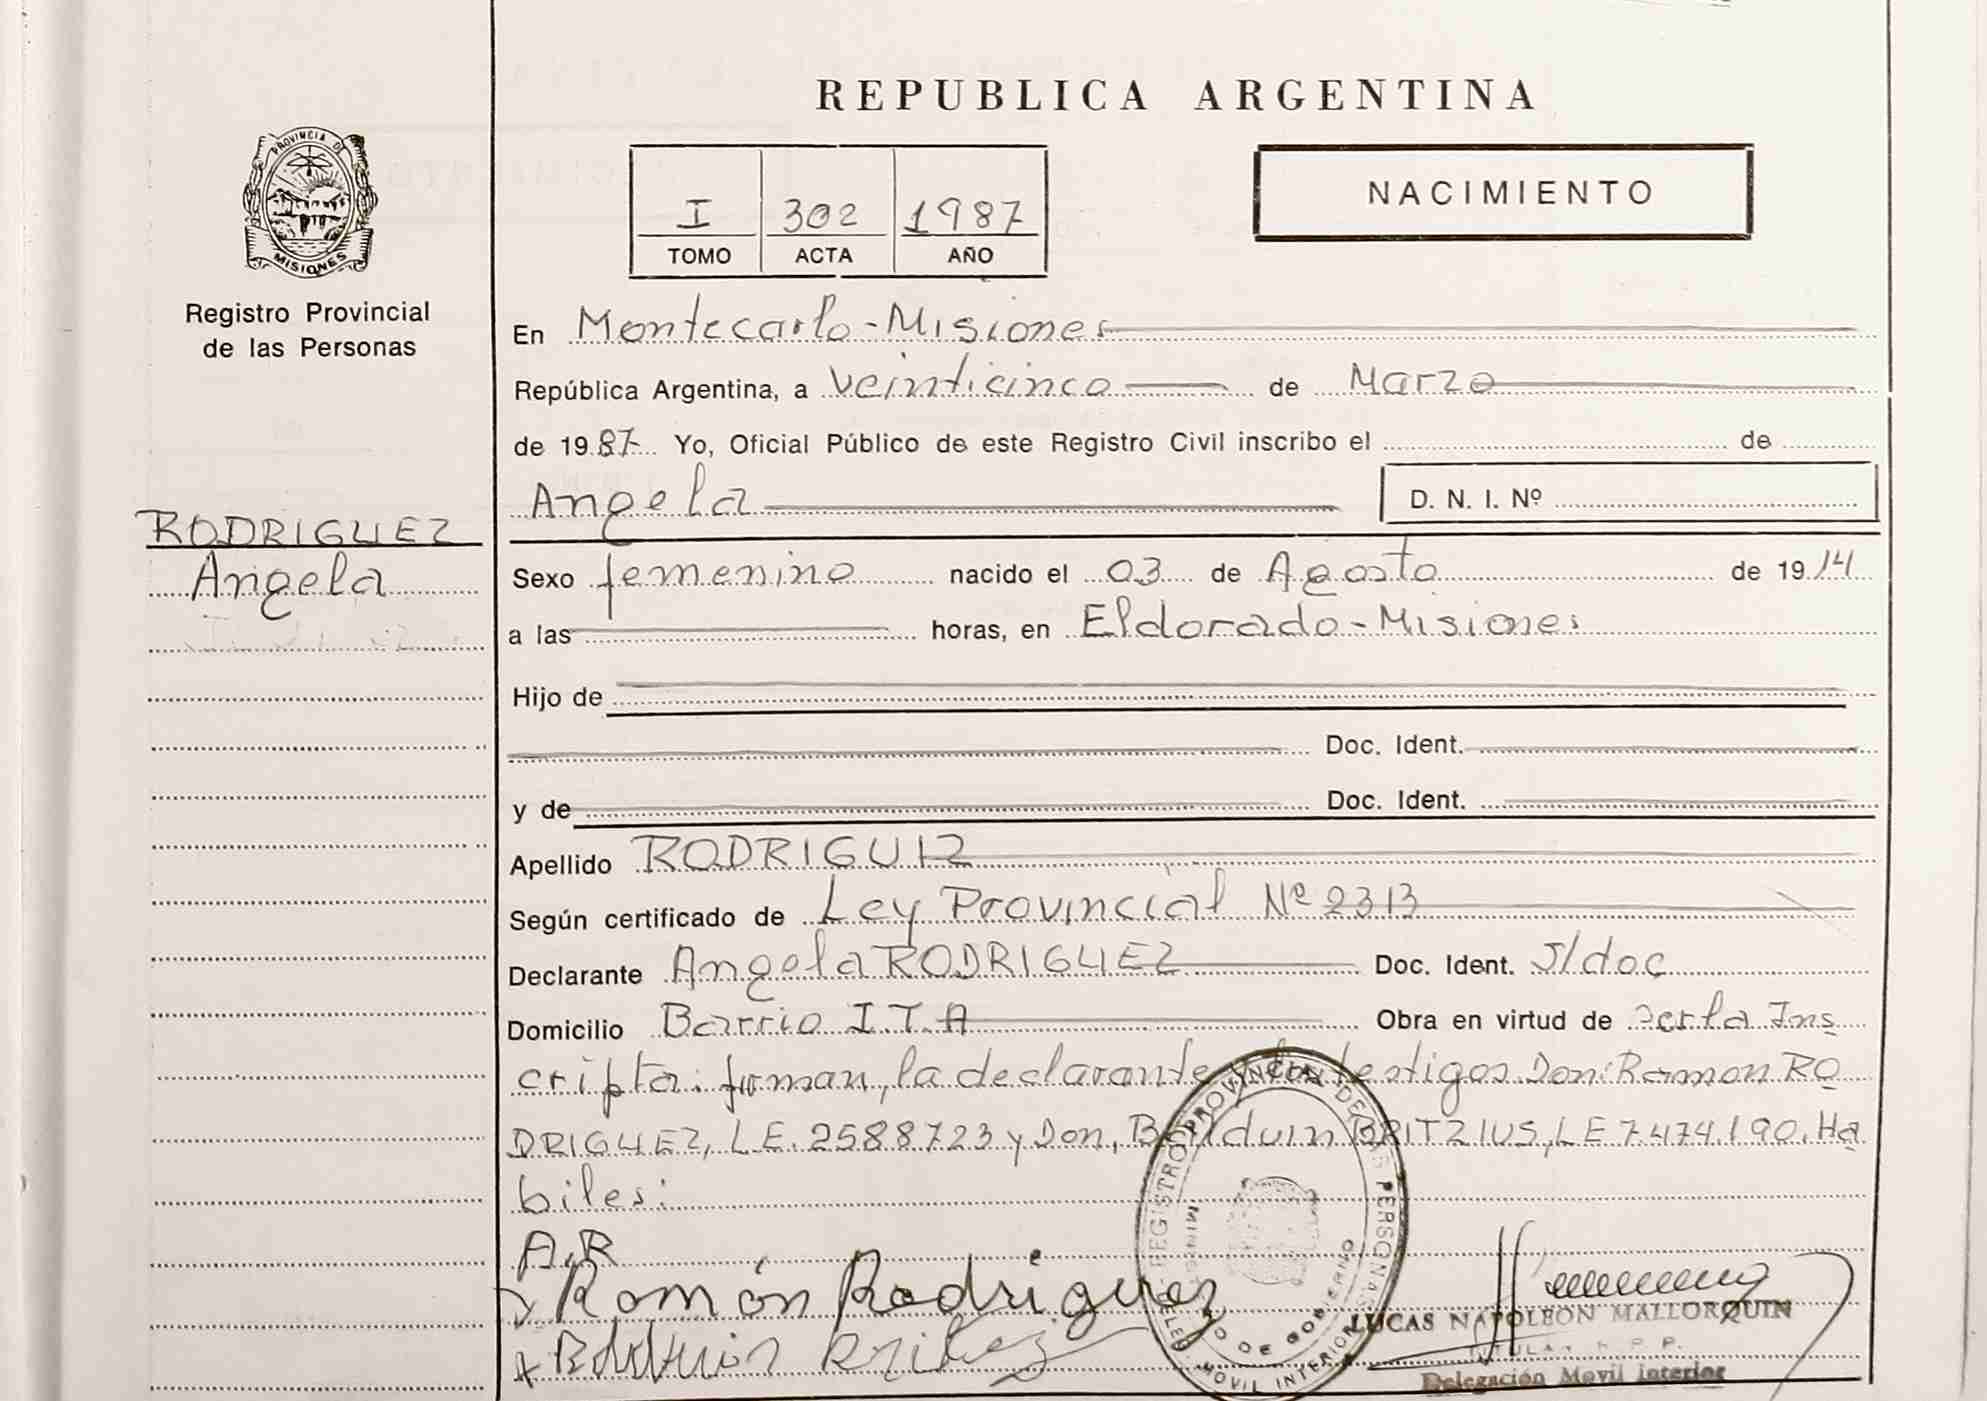 REPUBLICA ARGENTINA
PROVINCIA DE
MISIONES
Registro Provincial
de las Personas
I 302 1987
TOMO ACTA AÑO
NACIMIENTO
En Montecarlo-Misiones
República Argentina, a veinticinco de Marzo
de 1987 Yo, Oficial Público de este Registro Civil inscribo el de
Angela D. N. I. Nº
RODRIGUEZ
Angela
Sexo femenino nacido el 03 de Agosto de 1914
a las horas, en Eldorado-Misiones
Hijo de
Doc. Ident.
y de Doc. Ident.
Apellido RODRIGUIZ
Según certificado de Ley Provincial Nº 2313
Declarante Angela RODRIGUEZ Doc. Ident. S/doc
Domicilio Barrio I.T.A Obra en virtud de ser la Ins
cripta: firman, la declarante testigos Don: Ramon RO
DRIGUEZ, L.E. 2588723 y Don, Balduin BRITZIUS, LE 7.474.190. Ha
biles:
A.R
Ramón Rodriguez
REGISTRO PROVINCIAL DE LAS PERSONAS
DELEG. MOVIL INTERIOR
MINISTERIO DE GOBIERNO
LUCAS NAPOLEON MALLORQUIN
TITULAR R. P. P.
Delegación Movil Interior